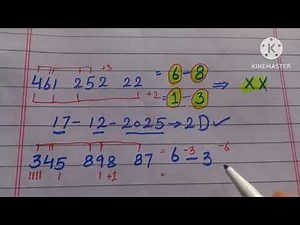 KINEMASTER
+3
461 252 22 = 6 - 8
+2 = 1 - 3 ⇒ XX
17 - 12 - 2025 → 2D ✓
345 898 87 = 6 -3 - 3 -6
1 +1 =